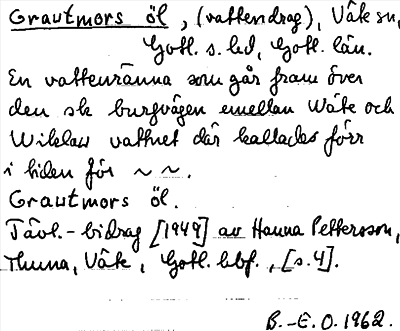 Grautmors öl, (vattendrag), Väte sn,
Gotl. s. hd, Gotl. län.
En vattenränna som går fram över
den sk burgvägen emellan Wäte och
Wiklau vattnet där kallades förr
i tiden för ~ ~.
Grautmors öl.
Tävl.-bidrag [1949] av Hanna Pettersson,
Thuna, Väte, Gotl. bbf., [s.4].
B.-E.O. 1962.